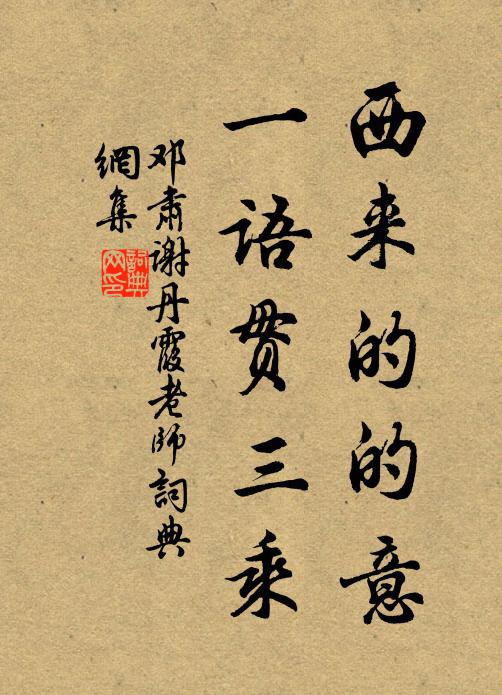 西来的的意
一语贯三乘
邓肃谢丹霞老師詞典
網集
詞典网印